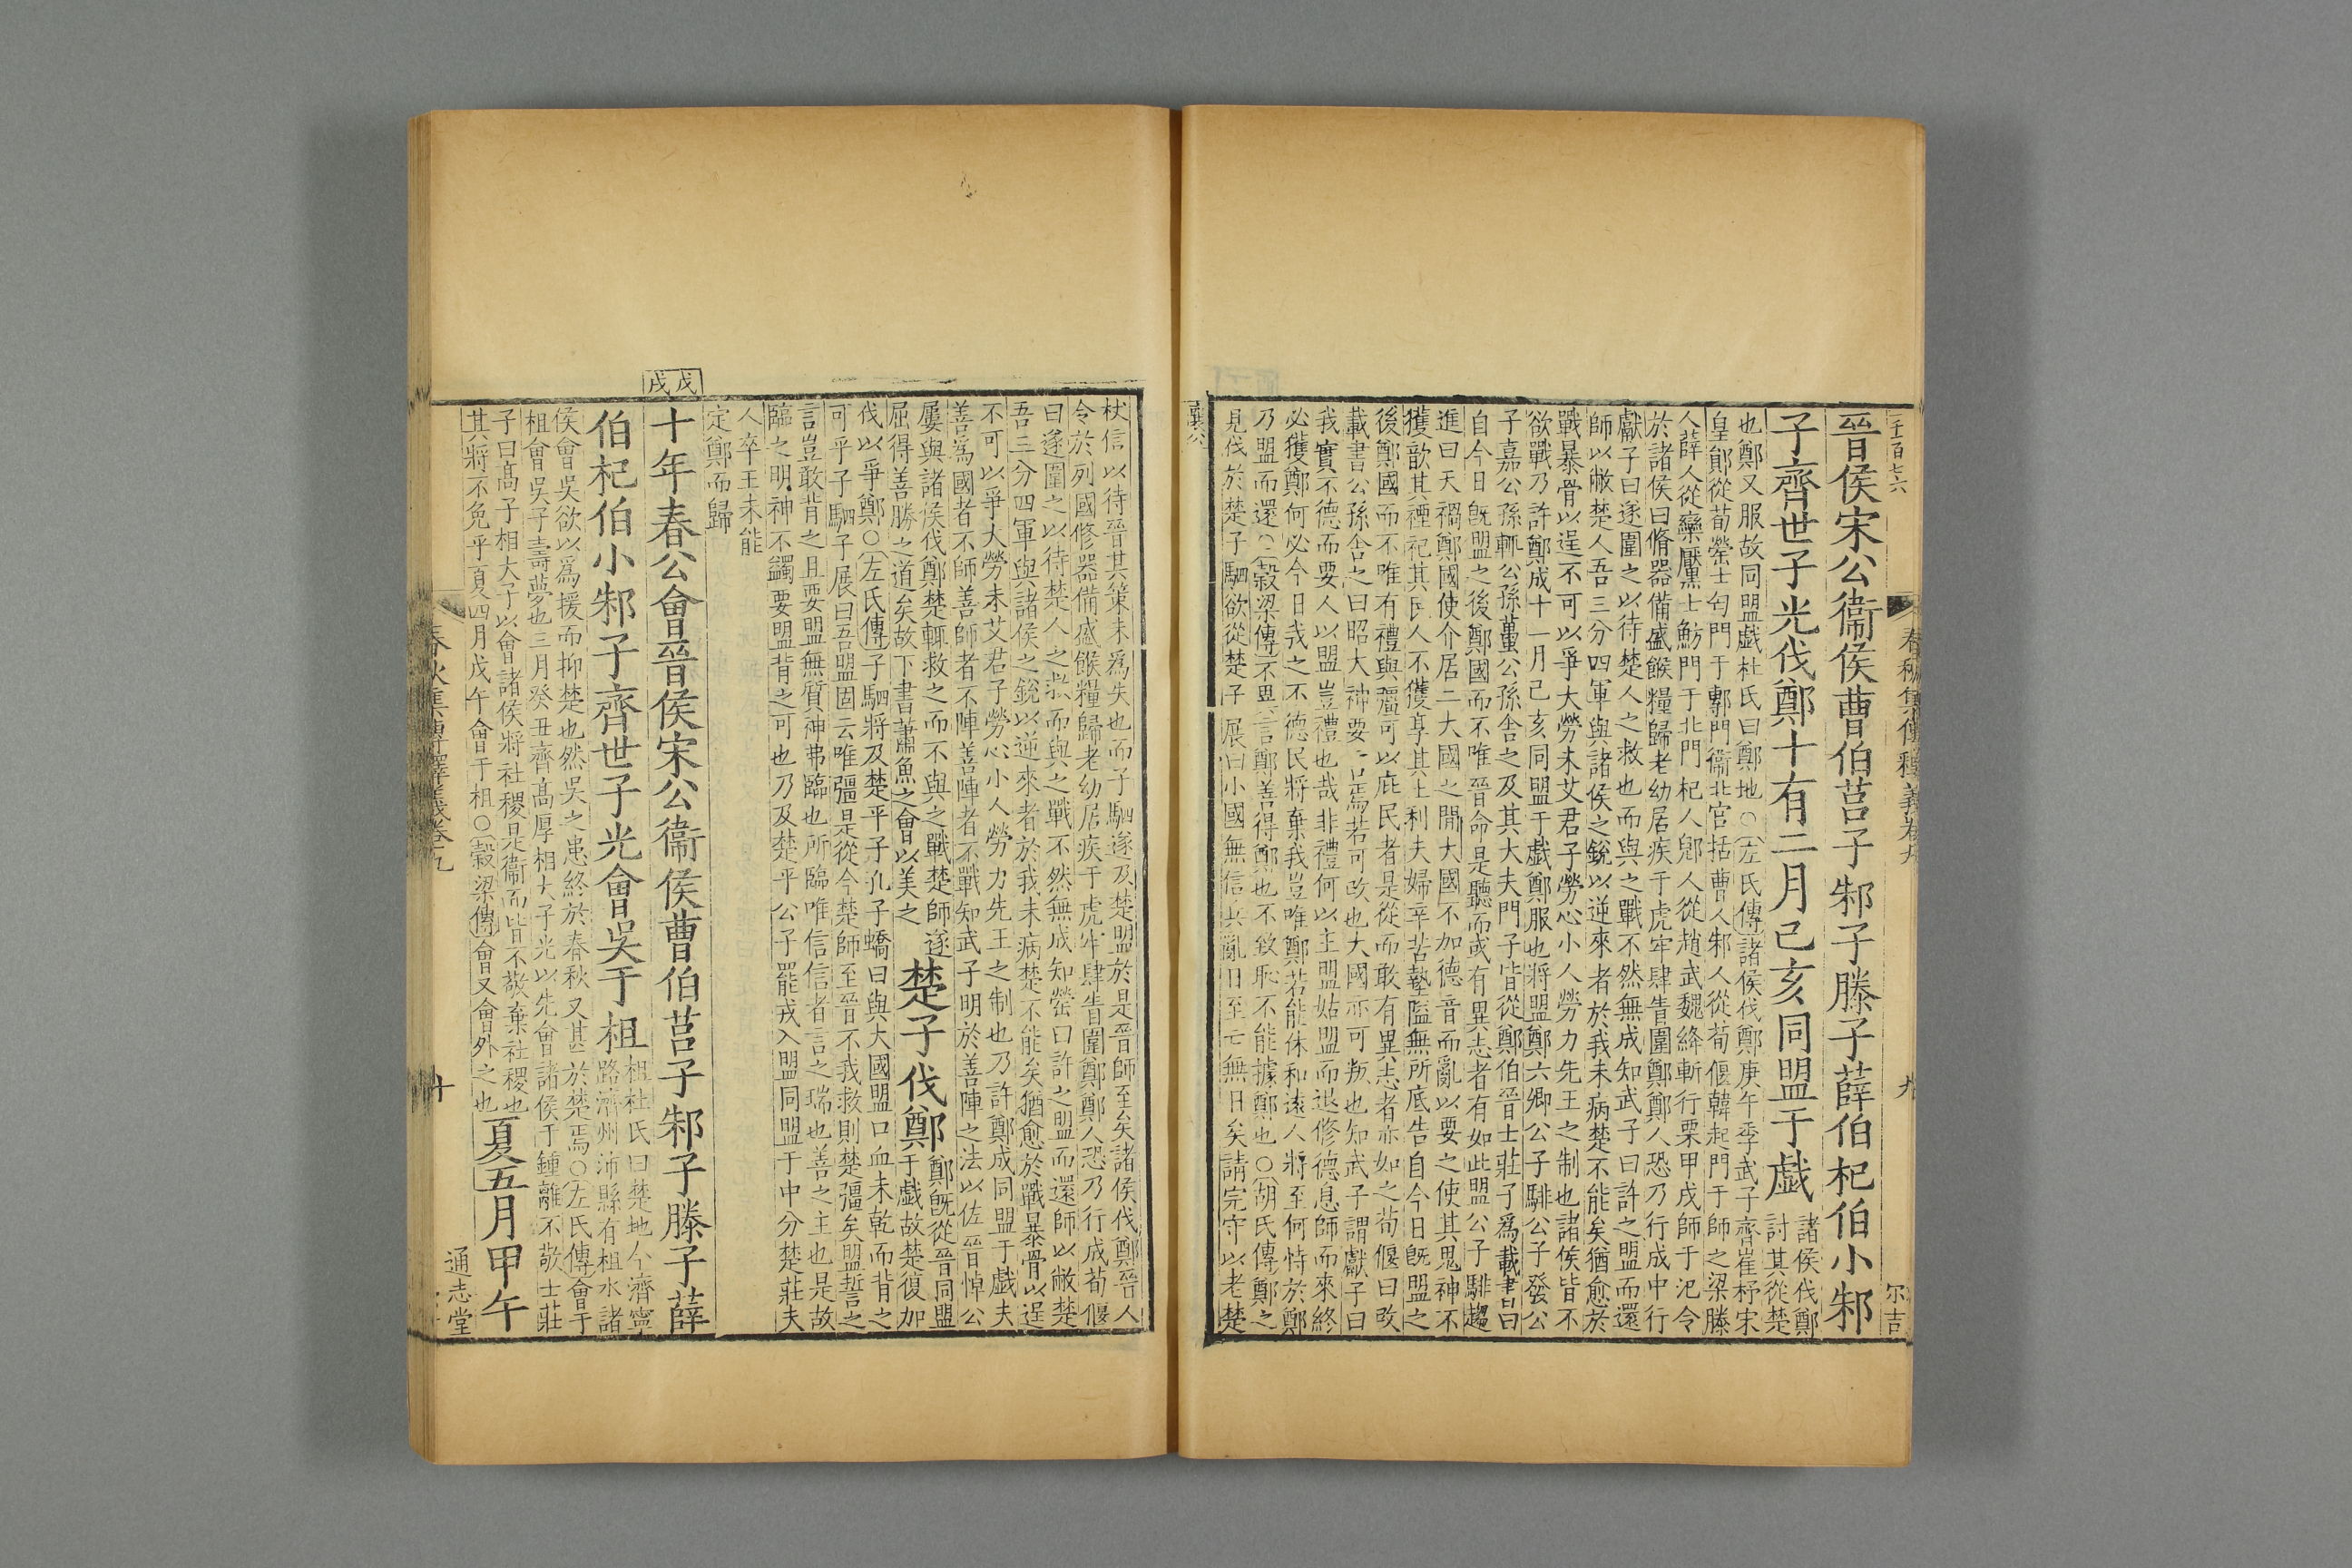 晉侯宋公衞侯曹伯莒子邾子滕子薛伯杞伯小邾
子齊世子光伐鄭十有二月己亥同盟于戲諸侯伐鄭
討其從楚
也鄭又服故同盟戲杜氏曰鄭地○左氏傳諸侯伐鄭庚午季武子齊崔杼宋
皇鄖從荀罃士匄門于鄟門衞北宮括曹人邾人從荀偃韓起門于師之梁滕
人薛人從欒黶士魴門于北門杞人郳人從趙武魏絳斬行栗甲戌師于氾令
於諸侯曰脩器備盛餱糧歸老幼居疾于虎牢肆眚圍鄭鄭人恐乃行成中行
獻子曰遂圍之以待楚人之救也而與之戰不然無成知武子曰許之盟而還
師以敝楚人吾三分四軍與諸侯之銳以逆來者於我未病楚不能矣猶愈於
戰暴骨以逞不可以爭大勞未艾君子勞心小人勞力先王之制也諸侯皆不
欲戰乃許鄭成十一月己亥同盟于戲鄭服也將盟鄭六卿公子騑公子發公
子嘉公孫輒公孫蠆公孫舍之及其大夫門子皆從鄭伯晉士莊子爲載書曰
自今日旣盟之後鄭國而不唯晉命是聽而或有異志者有如此盟公子騑趨
進曰天禍鄭國使介居二大國之閒大國不加德音而亂以要之使其鬼神不
獲歆其禋祀其民人不獲享其土利夫婦辛苦墊隘無所厎告自今日旣盟之
後鄭國而不唯有禮與彊可以庇民者是從而敢有異志者亦如之荀偃曰改
載書公孫舍之曰昭大神要言焉若可改也大國亦可叛也知武子謂獻子曰
我實不德而要人以盟豈禮也哉非禮何以主盟姑盟而退修德息師而來終
必獲鄭何必今日我之不德民將棄我豈唯鄭若能休和遠人將至何恃於鄭
乃盟而還○穀梁傳不異言鄭善得鄭也不致恥不能據鄭也○胡氏傳鄭之
見伐於楚子駟欲從楚子展曰小國無信兵亂日至亡無日矣請完守以老楚
杖信以待晉其策未爲失也而子駟遂及楚盟於是晉師至矣諸侯伐鄭晉人
令於列國修器備盛餱糧歸老幼居疾于虎牢肆眚圍鄭鄭人恐乃行成荀偃
曰遂圍之以待楚人之救而與之戰不然無成知罃曰許之盟而還師以敝楚
吾三分四軍與諸侯之銳以逆來者於我未病楚不能矣猶愈於戰暴骨以逞
不可以爭大勞未艾君子勞心小人勞力先王之制也乃許鄭成同盟于戲夫
善爲國者不師善師者不陣善陣者不戰知武子明於善陣之法以佐晉悼公
屢與諸侯伐鄭楚輒救之而不與之戰楚師遂
屈得善勝之道矣故下書蕭魚之會以美之
楚子伐鄭鄭旣從晉同盟
于戲故楚復加
伐以爭鄭○左氏傳子駟將及楚平子孔子蟜曰與大國盟口血未乾而背之
可乎子駟子展曰吾盟固云唯彊是從今楚師至晉不我救則楚彊矣盟誓之
言豈敢背之且要盟無質神弗臨也所臨唯信信者言之瑞也善之主也是故
臨之明神不蠲要盟背之可也乃及楚平公子罷戎入盟同盟于中分楚莊夫
人卒王未能
定鄭而歸
戊戌
十年春公會晉侯宋公衞侯曹伯莒子邾子滕子薛
伯杞伯小邾子齊世子光會吳于柤柤杜氏曰楚地今濟寧
路濟州沛縣有柤水諸
侯會吳欲以爲援而抑楚也然吳之患終於春秋又甚於楚焉○左氏傳會于
柤會吳子壽夢也三月癸丑齊高厚相大子光以先會諸侯于鍾離不敬士莊
子曰高子相大子以會諸侯將社稷是衞而皆不敬棄社稷也
其將不免乎夏四月戊午會于柤○穀梁傳會又會外之也
夏五月甲午
春秋集傳釋義卷九
十
通志堂